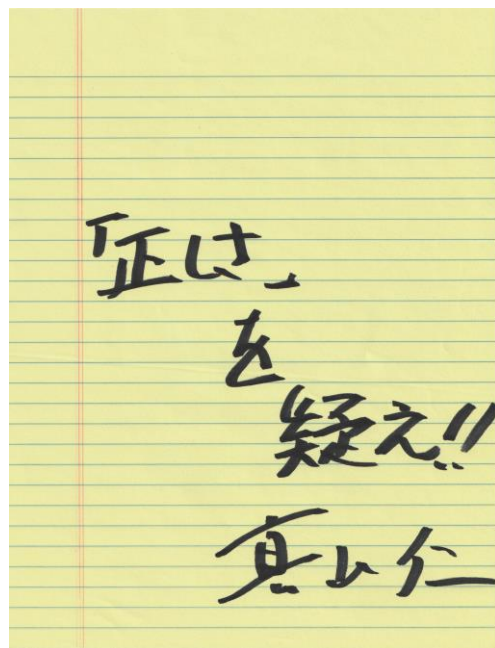 「正しさ」
を
疑え!!
真山仁